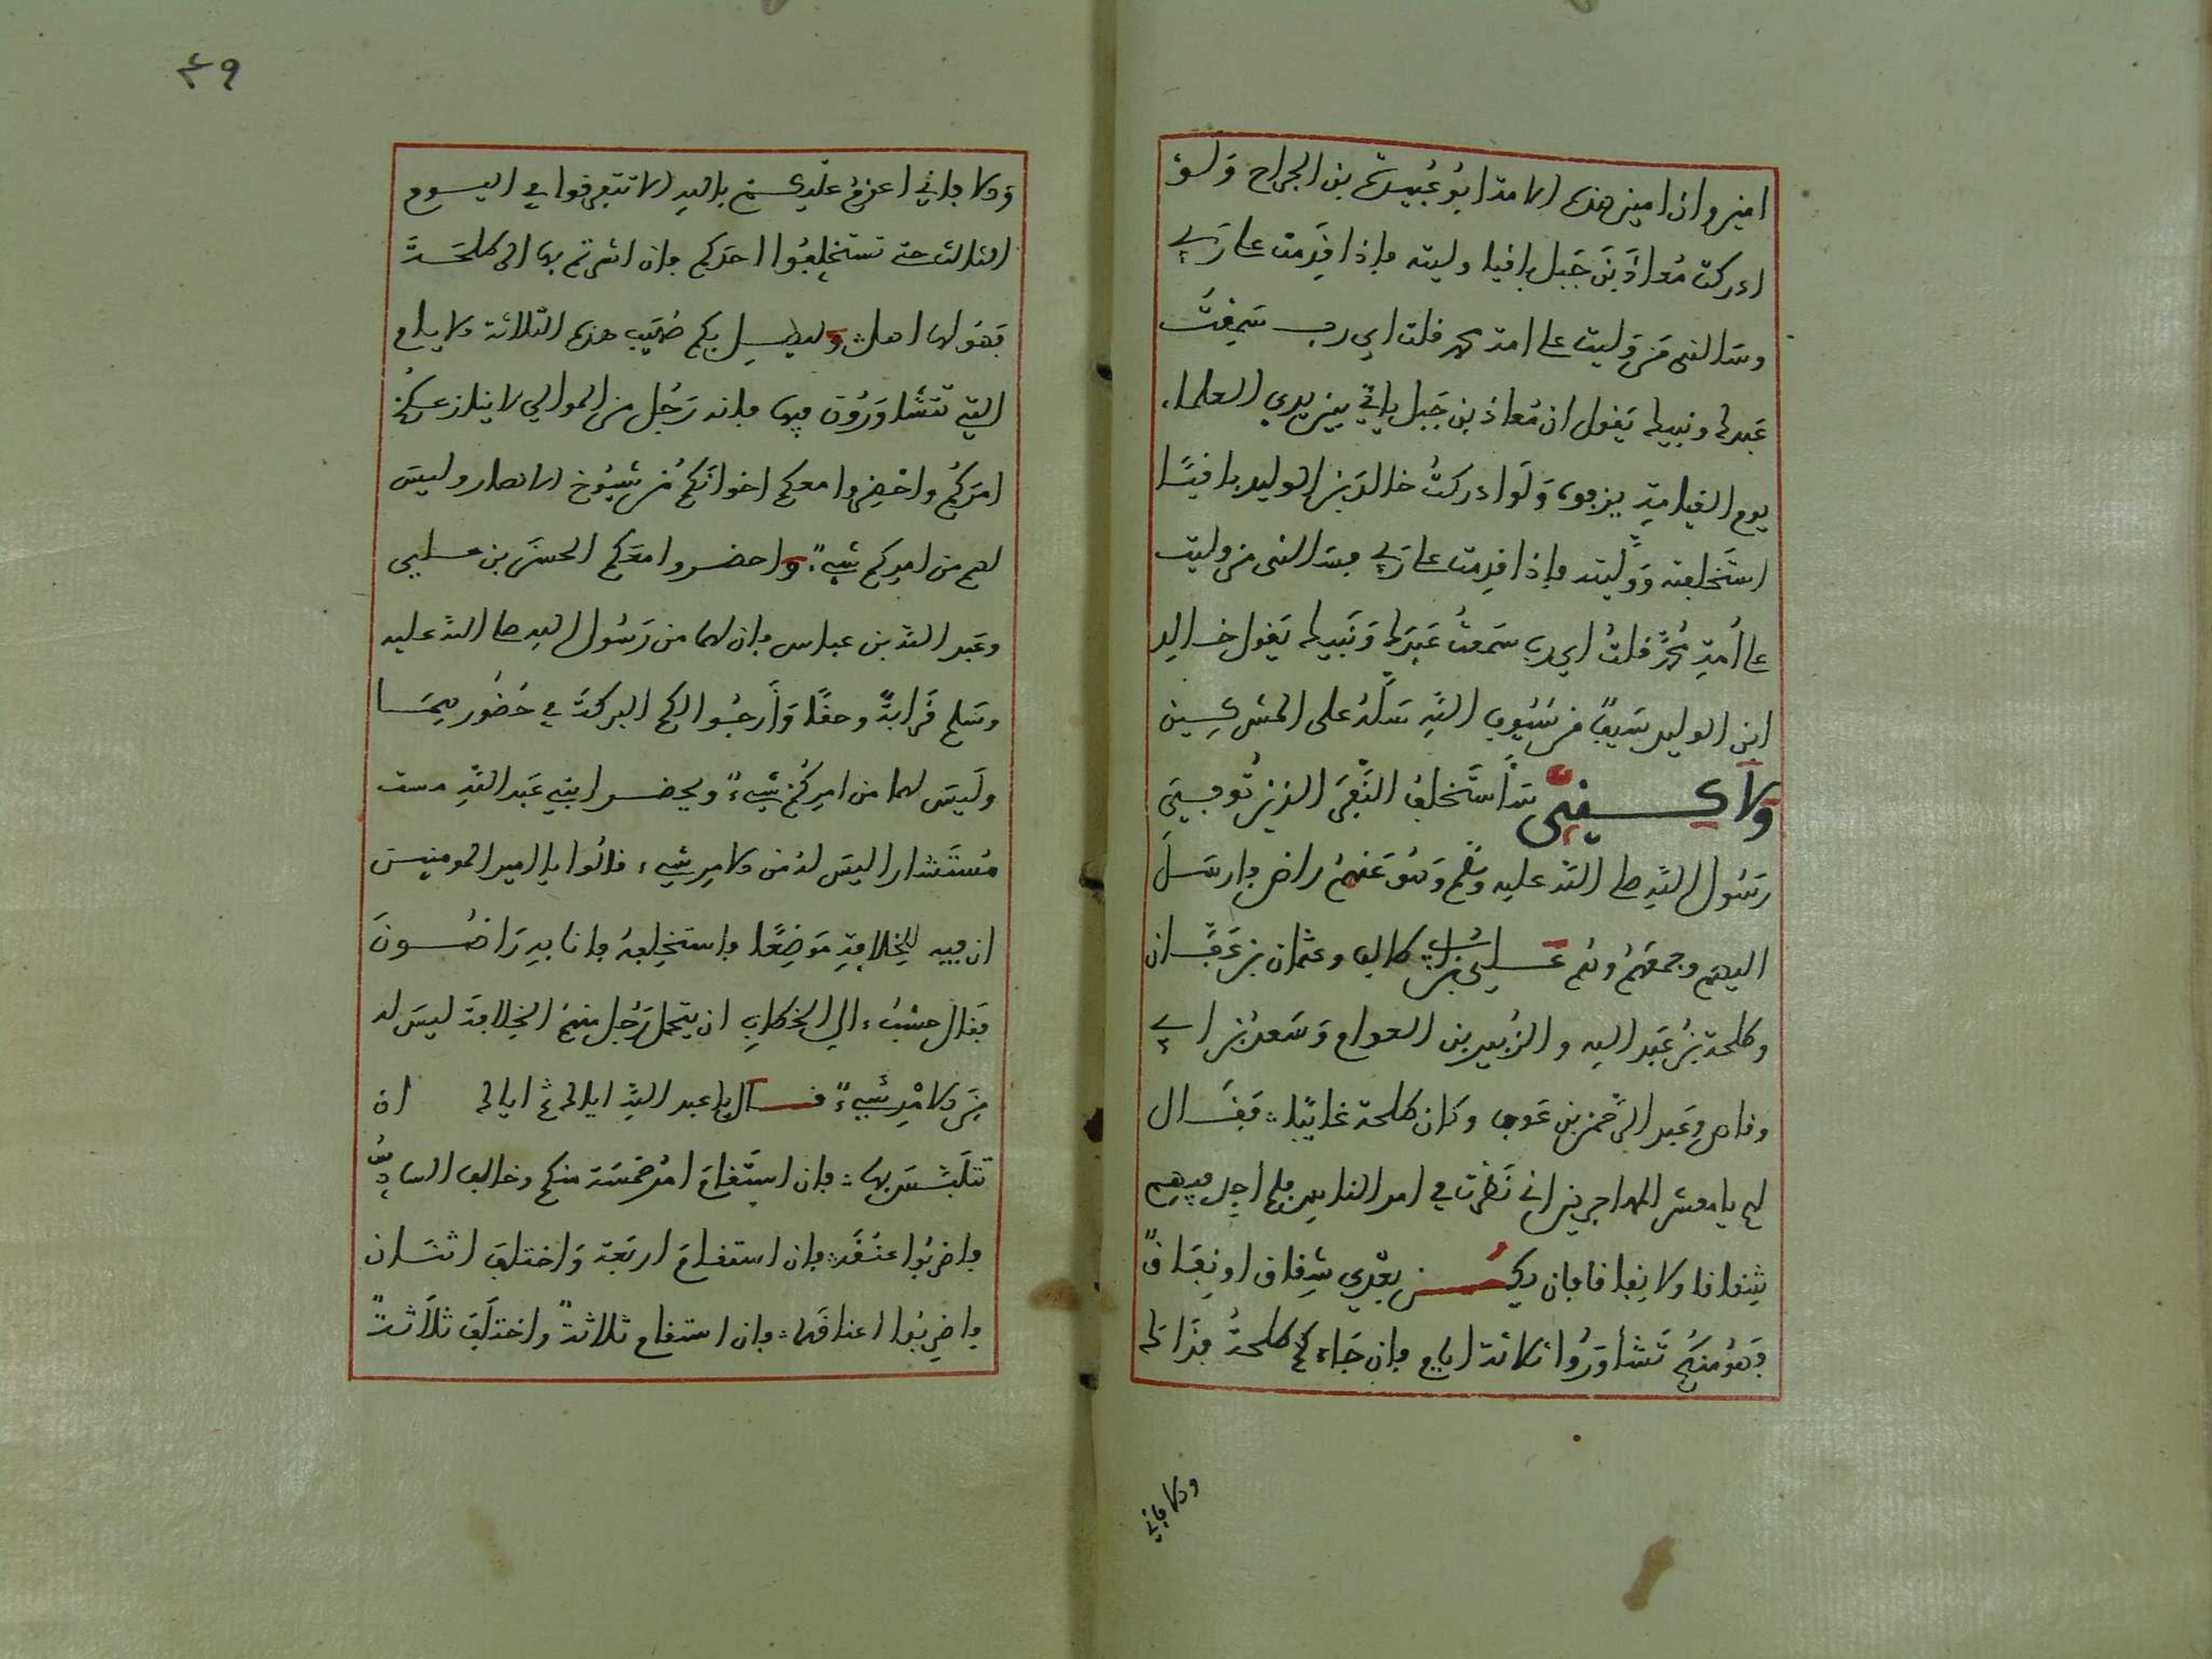 امين وان امين هذه الامة ابو عبيدة بن الجراح ولو
ادركت معاذ بن جبل باقيا وليته فإذا قدمت على ربي
وسالني من وليت على امة محمد قلت اي رب سمعت
عبدك ونبيك يقول ان معاذ بن جبل ياتي بين يدي العلماء
يوم القيامة ولو ادركت خالد بن الوليد باقيا
استخلفته ووليته فإذا قدمت على ربي فسالني من وليت
على أمة محمد قلت اي رب سمعت عبدك ونبيك يقول خالد
ابن الوليد سيف من سيوف الله سله على المشركين
ولاكنني سأستخلف النفر الذين توفي
رسول الله صلى الله عليه وسلم وهو عنهم راض فارسل
اليهم وجمعهم وهم علي بن ابي طالب وعثمان بن عفان
وطلحة بن عبد الله والزبير بن العوام وسعد بن ابي
وقاص وعبد الرحمن بن عوف وكان طلحة غائبا فقال
لهم يا معشر المهاجرين اني نظرت في امر الناس فلم اجد فيهم
شقاقا ولا نفاقا فان يكن بعدي شقاق او نفاق
فهو منكم تشاوروا ثلاثة ايام فإن جاءكم طلحة فذاك
والا فإني
٤٩
والا فإني اعزم عليكم بالله الا تتفرقوا في اليوم
الثالث حتى تستخلفوا احدكم فإن اشرتم بها الى طلحة
فهو لها اهل وليصل بكم صهيب هذه الثلاثة الايام
التي تتشاورون فيها فإنه رجل من الموالي لا ينازعكم
امركم واحضروا معكم اخوانكم من شيوخ الانصار وليس
لهم من امركم شيء واحضروا معكم الحسن بن علي
وعبد الله بن عباس فإن لهما من رسول الله صلى الله عليه
وسلم قرابة وحقا وأرجوا لكم البركة في حضورهما
وليس لهما من امركم شيء ويحضر ابني عبد الله
مستشارا ليس له من الامر شيء قالوا يا امير المومنين
ان فيه للخلافة موضعا فاستخلفه فإنا به راضون
فقال حسب ءال الخطاب ان يتحمل رجل منهم الخلافة ليس له
من الامر شيء قال يا عبد الله اياك ثم اياك ان
تتلبس بها فإن استقام امر خمسة منكم وخالف السادس
فاضربوا عنقه فإن استقام اربعة واختلف اثنان
فاضربوا اعناقهما فإن استقام ثلاثة واختلف ثلاثة